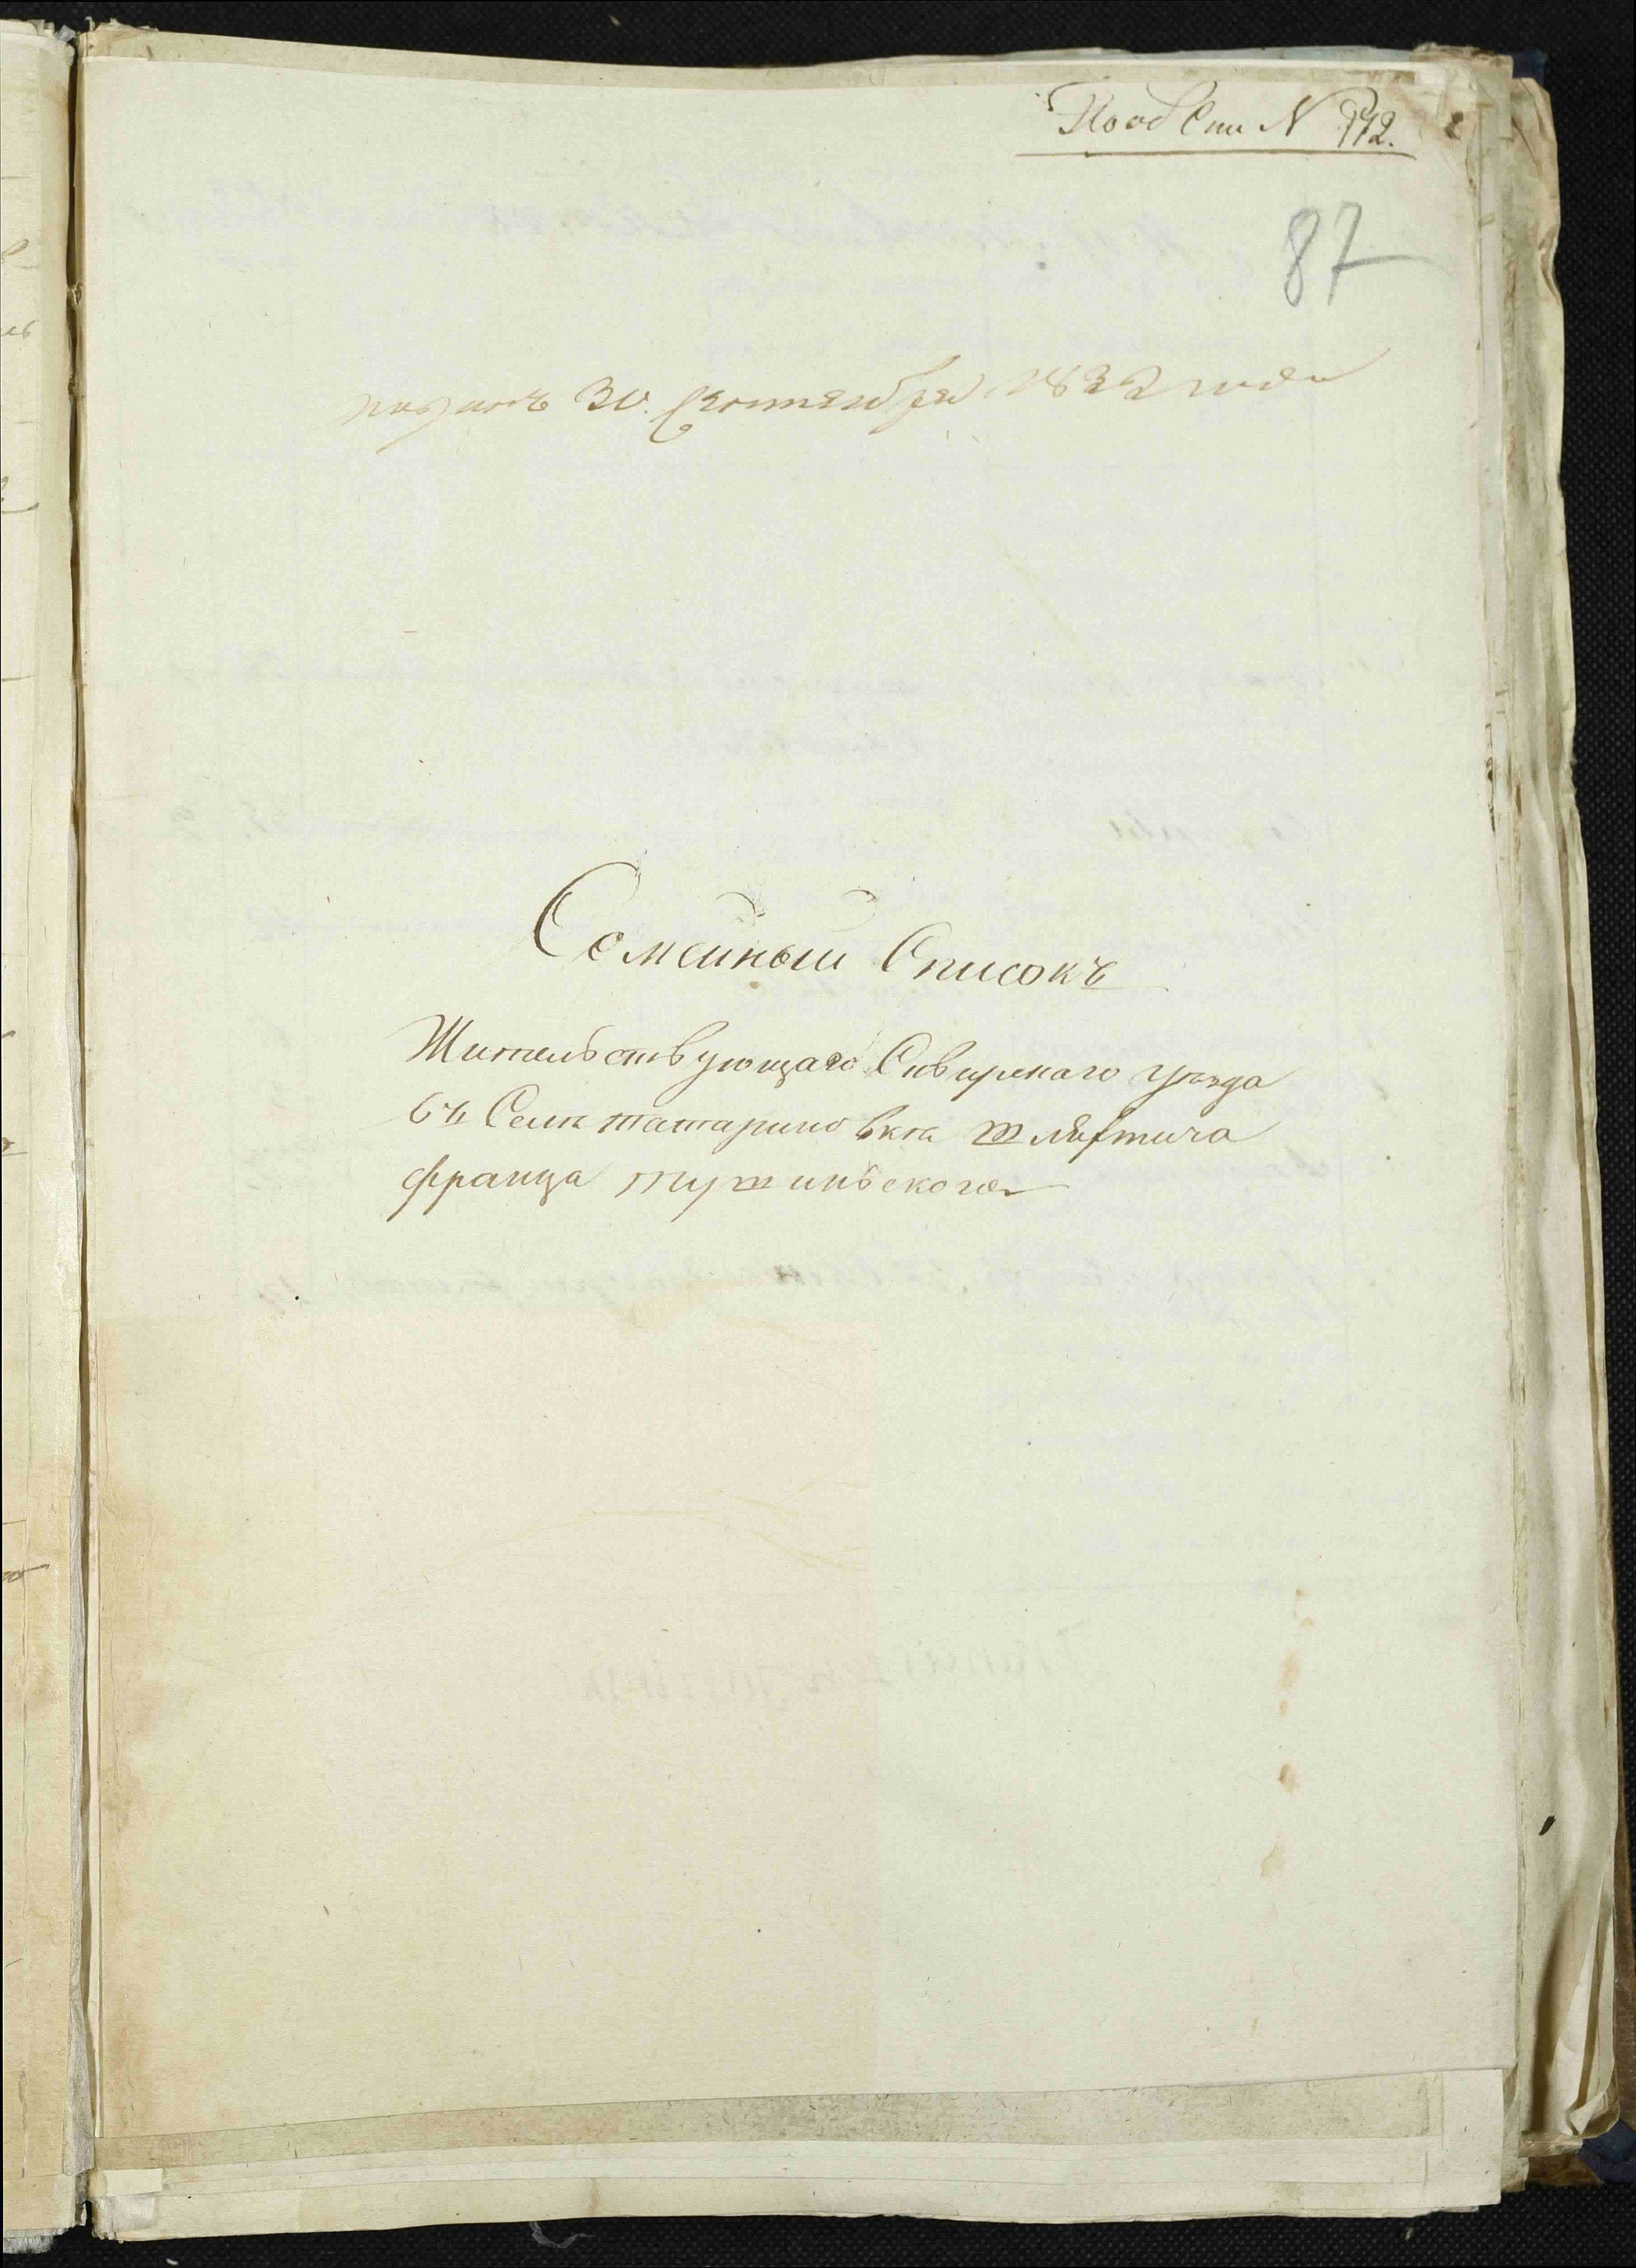 Под Спи N 772.
87
поданъ 30. Сентября 1832 года
Семейный Списокъ
Жительствующаго Сквирскаго уѣзда
въ Селѣ татариновкѣ шляхтича
франца тушинского